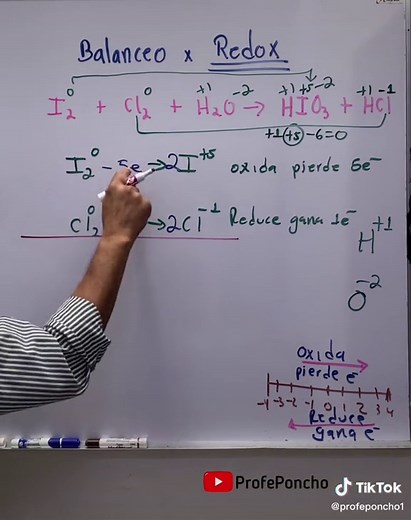 Balanceo x Redox
0 0 +1 -2 +1 +5 -2 +1 -1
I₂ + Cl₂ + H₂O → HIO₃ + HCl
+1 +5 -6 = 0
I₂⁰ - 5e → 2I⁺⁵ oxida pierde 5e⁻
Cl₂⁰ → 2Cl⁻¹ Reduce gana 1e⁻
H⁺¹
O⁻²
oxida
pierde e⁻
-4 -3 -2 -1 0 1 2 3 4
Reduce
gana e⁻
ProfePoncho
TikTok
@profeponcho1